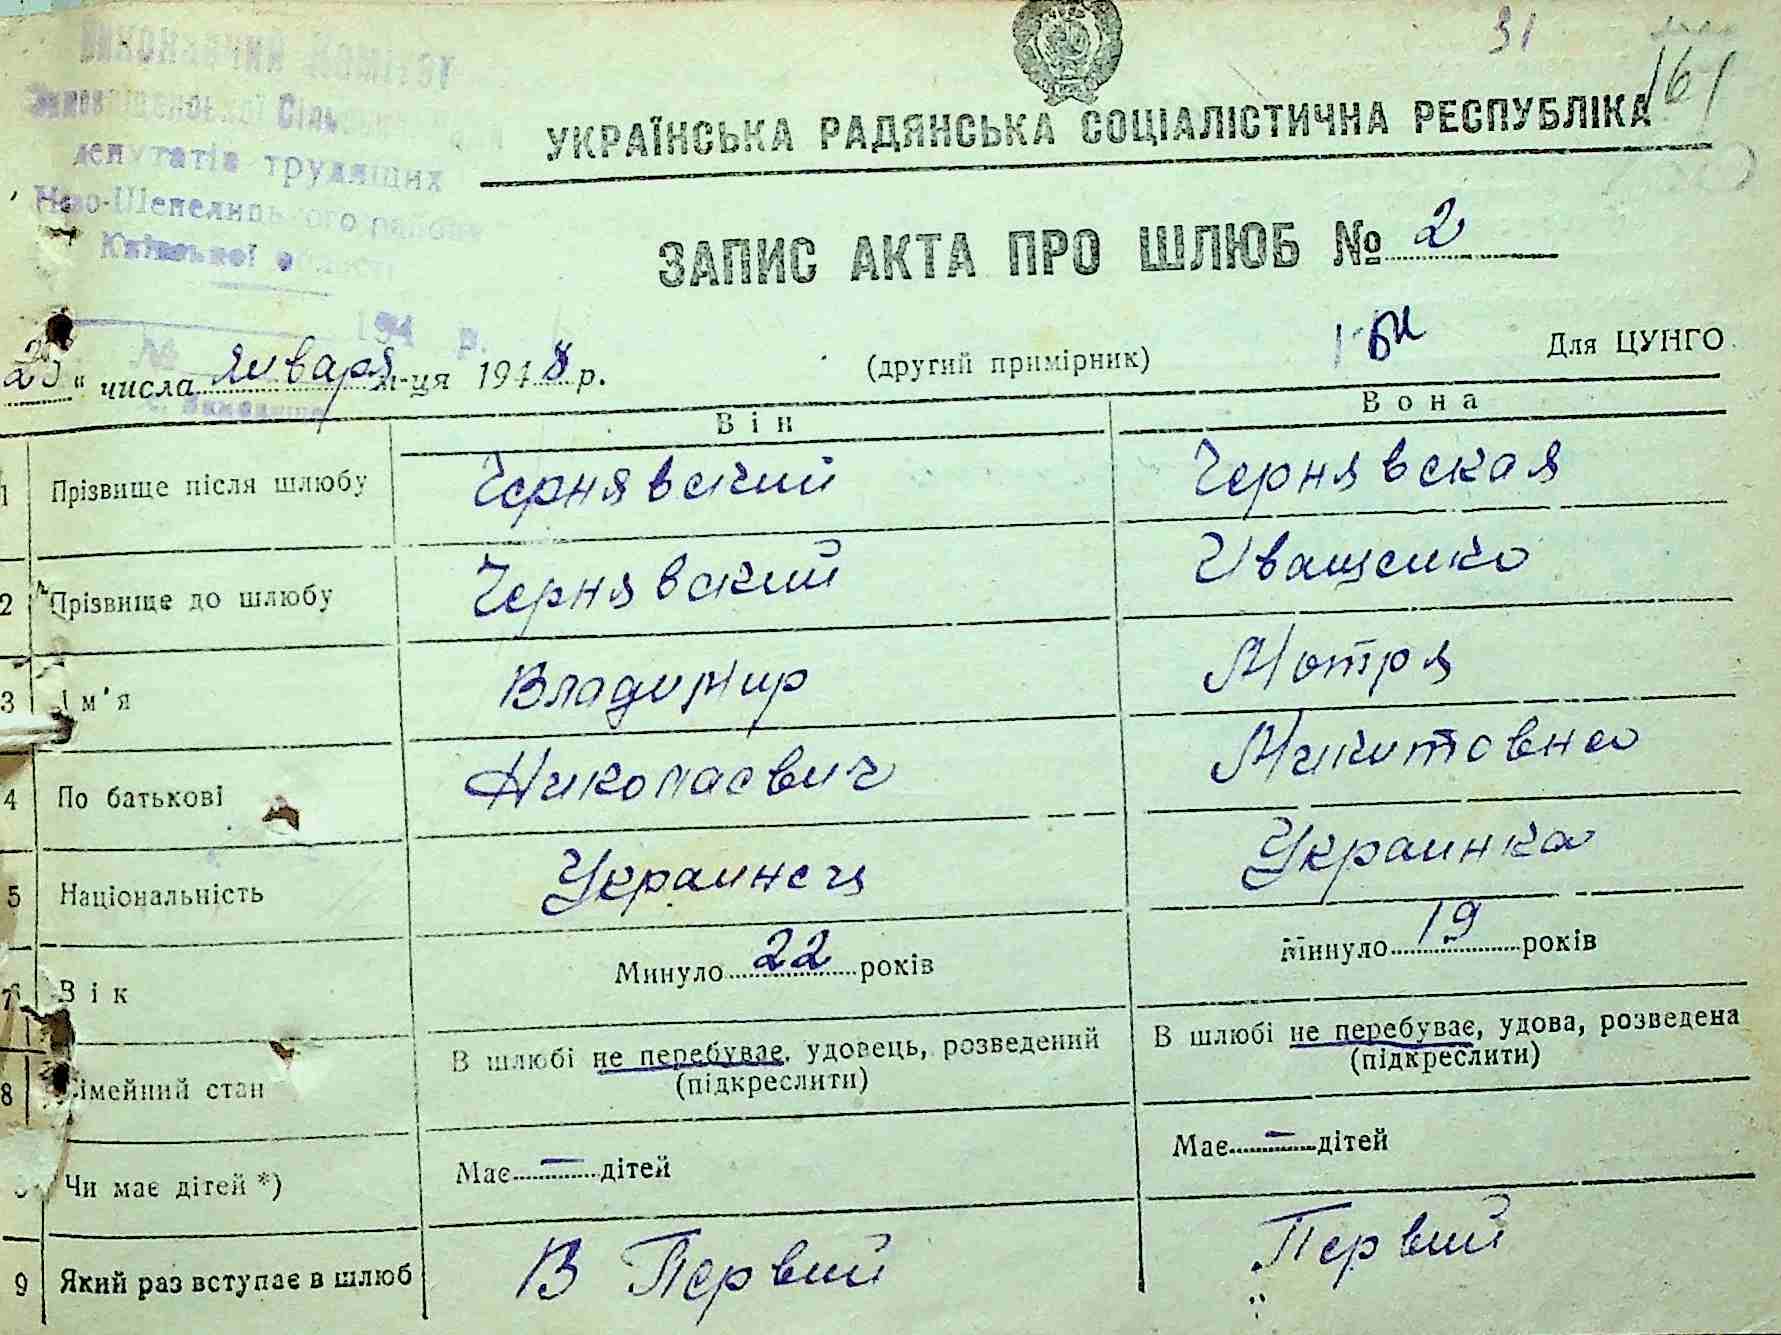 Виконавчий Комітет
депутатів трудящих
Ново-Шепелицького району
Київської області
194 р.
31
161
УКРАЇНСЬКА РАДЯНСЬКА СОЦІАЛІСТИЧНА РЕСПУБЛІКА
ЗАПИС АКТА ПРО ШЛЮБ № 2
25 " числа января м-ця 1948 р. (другий примірник) Для ЦУНГО
Він Вона
1 Прізвище після шлюбу Чернявский Чернявская
2 Прізвище до шлюбу Чернявский Иващенко
3 Ім'я Владимир Мотря
4 По батькові Николаевич Микитовна
5 Національність Украинец Украинка
7 Вік Минуло 22 років Минуло 19 років
8 Сімейний стан В шлюбі не перебуває, удовець, розведений (підкреслити) В шлюбі не перебуває, удова, розведена (підкреслити)
Чи має дітей *) Має — дітей Має — дітей
9 Який раз вступає в шлюб В Первий Первий